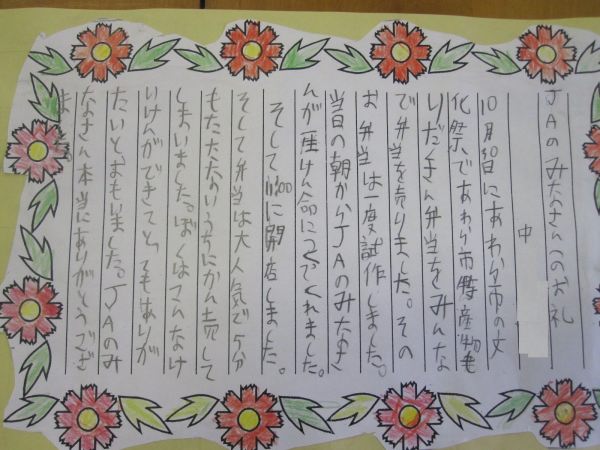 JAのみなさんへのお礼
中
10月30日にあわら市の文
化祭であわら市特産物も
りだくさん弁当をみんな
で弁当を売りました。その
お弁当は一度試作しました。
当日の朝からJAのみなさ
んが一生けん命につくてくれました。
そして11:00に開店しました。
そして弁当は大人気で5分
もたたないうちにかん売して
しまいました。ぼくはこんなけ
いけんができてとってもありが
たいとおもいました。JAのみ
なさん本当にありがとうござ